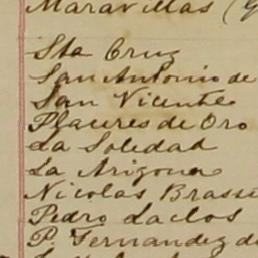 Maravillas (
Sta Cruz
San Antonio de
San Vicente
Placeres de Oro
La Soledad
La Arizona
Nicolas Brasse
Pedro Laclos
P. Fernandez de